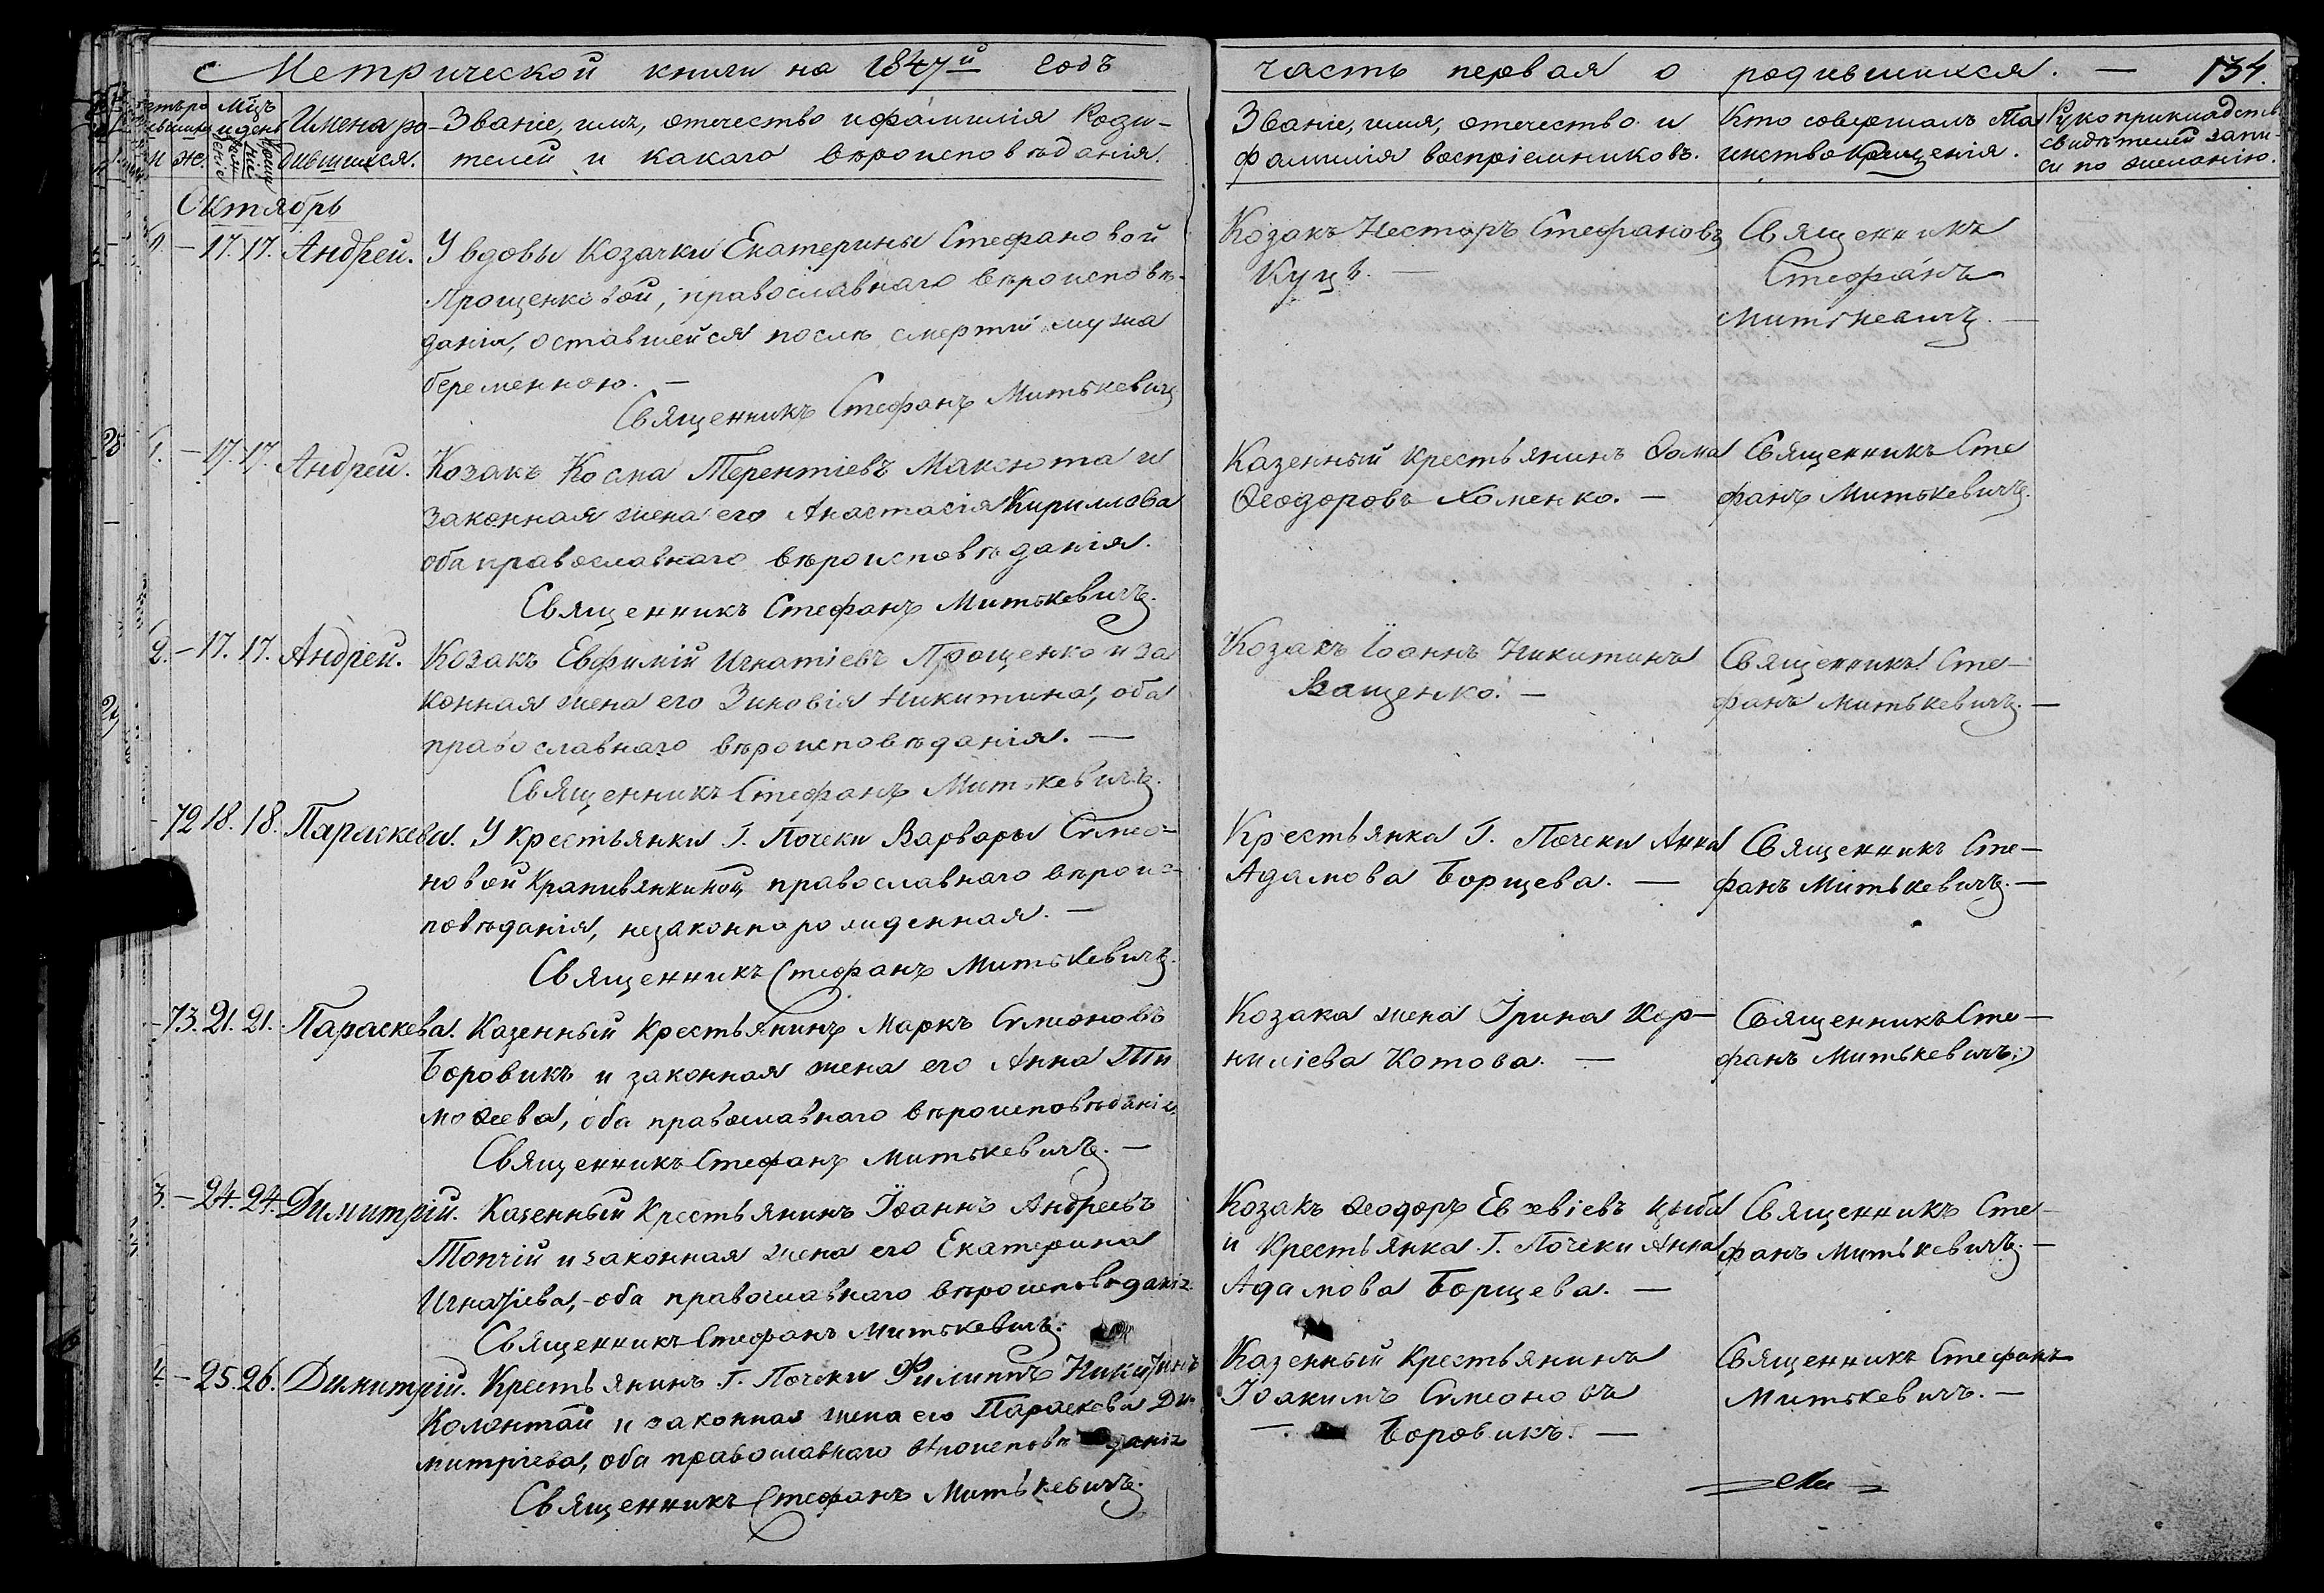 Метрической книги на 1847й годъ
часть первая о родившихся. — 134.
Мцъ и день
Имена ро-
дившихся.
Званіе, имя, отечество и фамилія Роди-
телей и какаго вѣроисповѣданія.
Званіе, имя, отечество и
фамилія воспріемниковъ.
Кто совершалъ Та
инство крещенія.
Рукоприкладств
свидѣтелей запи-
си по желанію.
Октябрь
— 17. 17. Андрей. У вдовы Козачки Екатерины Стефановой
Прощенковой, православнаго вѣроисповѣ-
данія, оставшейся послѣ смерти мужа
беременною. —
Священникъ Стефанъ Митькевичъ
Козакъ Несторъ Стефановъ
Куцъ. —
Священникъ
Стефанъ
Митькевичъ. —
1. — 17. 17. Андрей. Козакъ Косма Терентіевъ Максюта и
законная жена его Анастасія Кириллова
оба православнаго вѣроисповѣданія.
Священникъ Стефанъ Митькевичъ.
Казенный крестьянинъ Ѳома
Ѳеодоровъ Хоменко. —
Священникъ Сте
фанъ Митькевичъ.
2. — 17. 17. Андрей. Козакъ Евфимій Игнатіевъ Прощенко и за
конная жена его Зиновія Никитина, оба
православнаго вѣроисповѣданія. —
Священникъ Стефанъ Митькевичъ.
Козакъ Іоаннъ Никитинъ
Ващенко. —
Священникъ Сте-
фанъ Митькевичъ. —
- 72 18. 18. Параскева. У крестьянки Г. Почеки Варвары Симео-
новой Крапивянкиной, православнаго вѣроис-
повѣданія, незаконнорожденная. —
Священникъ Стефанъ Митькевичъ.
Крестьянка Г. Почеки Анна
Адамова Борщева. —
Священникъ Сте-
фанъ Митькевичъ. —
- 73. 21. 21. Параскева. Казенный крестьянинъ Маркъ Симеоновъ
Боровикъ и законная жена его Анна Ти
моѳеева, оба православнаго вѣроисповѣданія.
Священникъ Стефанъ Митькевичъ. —
Козака жена Ірина Кор-
ниліева Котова. —
Священникъ Сте-
фанъ Митькевичъ.
3. — 24. 24. Димитрій. Казенный Крестьянинъ Іоаннъ Андреевъ
Топчій и законная жена его Екатерина
Игнатіева, оба православнаго вѣроисповѣданія.
Священникъ Стефанъ Митькевичъ.
Козакъ Ѳеодоръ Евсевіевъ Цыба
и Крестьянка Г. Почеки Анна
Адамова Борщева. —
Священникъ Сте-
фанъ Митькевичъ. —
4. — 25. 26. Димитрій. Крестьянинъ Г. Почеки Филиппъ Никитинъ
Колонтай и законная жена его Параскева Ди-
митріева, оба православнаго вѣроисповѣданія
Священникъ Стефанъ Митькевичъ.
Казенный крестьянинъ
Іоакимъ Симеоновъ
Боровикъ. —
Священникъ Стефанъ
Митькевичъ. —